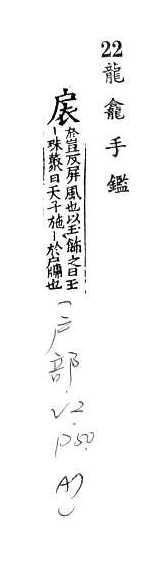 22 龍龕手鑑
扆 於豈反屏風也以玉飾之曰玉
｜珠叢曰天子施｜於戶牖也
(戶部.V2.P50.A7)